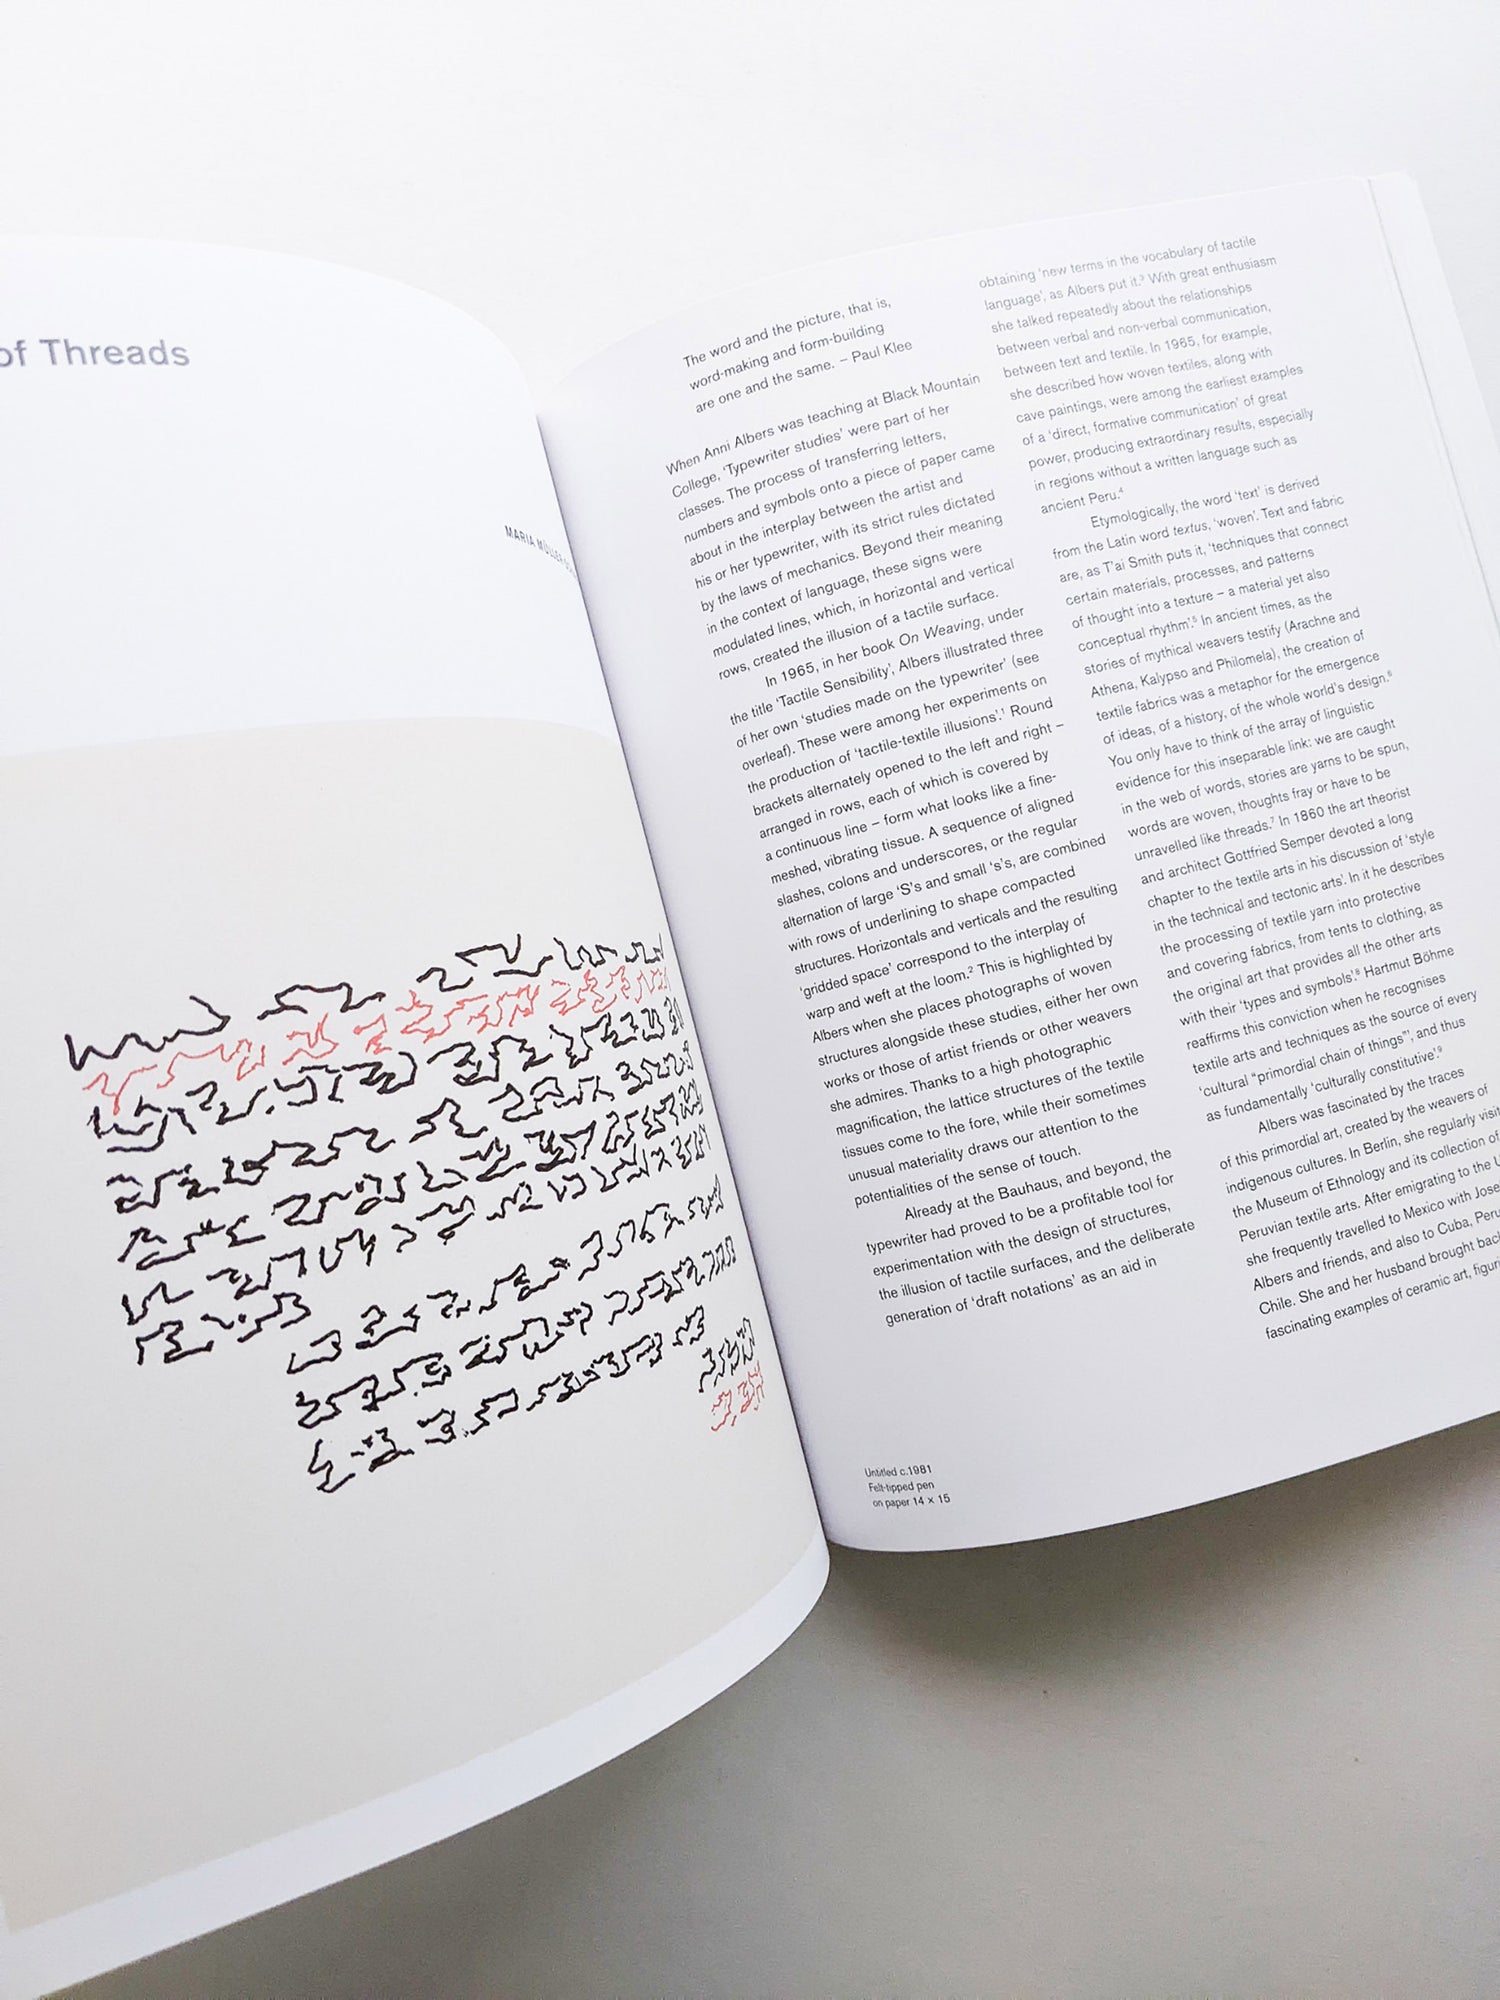 of Threads
MARIA MÜLLER
The word and the picture, that is,
word-making and form-building
are one and the same. – Paul Klee
When Anni Albers was teaching at Black Mountain
College, ‘Typewriter studies’ were part of her
classes. The process of transferring letters,
numbers and symbols onto a piece of paper came
about in the interplay between the artist and
his or her typewriter, with its strict rules dictated
by the laws of mechanics. Beyond their meaning
in the context of language, these signs were
modulated lines, which, in horizontal and vertical
rows, created the illusion of a tactile surface.
In 1965, in her book On Weaving, under
the title ‘Tactile Sensibility’, Albers illustrated three
of her own ‘studies made on the typewriter’ (see
overleaf). These were among her experiments on
the production of ‘tactile-textile illusions’.¹ Round
brackets alternately opened to the left and right –
arranged in rows, each of which is covered by
a continuous line – form what looks like a fine-
meshed, vibrating tissue. A sequence of aligned
slashes, colons and underscores, or the regular
alternation of large ‘S’s and small ‘s’s, are combined
with rows of underlining to shape compacted
structures. Horizontals and verticals and the resulting
‘gridded space’ correspond to the interplay of
warp and weft at the loom.² This is highlighted by
Albers when she places photographs of woven
structures alongside these studies, either her own
works or those of artist friends or other weavers
she admires. Thanks to a high photographic
magnification, the lattice structures of the textile
tissues come to the fore, while their sometimes
unusual materiality draws our attention to the
potentialities of the sense of touch.
Already at the Bauhaus, and beyond, the
typewriter had proved to be a profitable tool for
experimentation with the design of structures,
the illusion of tactile surfaces, and the deliberate
generation of ‘draft notations’ as an aid in
obtaining ‘new terms in the vocabulary of tactile
language’, as Albers put it.³ With great enthusiasm
she talked repeatedly about the relationships
between verbal and non-verbal communication,
between text and textile. In 1965, for example,
she described how woven textiles, along with
cave paintings, were among the earliest examples
of a ‘direct, formative communication’ of great
power, producing extraordinary results, especially
in regions without a written language such as
ancient Peru.⁴
Etymologically, the word ‘text’ is derived
from the Latin word textus, ‘woven’. Text and fabric
are, as T’ai Smith puts it, ‘techniques that connect
certain materials, processes, and patterns
of thought into a texture – a material yet also
conceptual rhythm’.⁵ In ancient times, as the
stories of mythical weavers testify (Arachne and
Athena, Kalypso and Philomela), the creation of
textile fabrics was a metaphor for the emergence
of ideas, of a history, of the whole world’s design.⁶
You only have to think of the array of linguistic
evidence for this inseparable link: we are caught
in the web of words, stories are yarns to be spun,
words are woven, thoughts fray or have to be
unravelled like threads.⁷ In 1860 the art theorist
and architect Gottfried Semper devoted a long
chapter to the textile arts in his discussion of ‘style
in the technical and tectonic arts’. In it he describes
the processing of textile yarn into protective
and covering fabrics, from tents to clothing, as
the original art that provides all the other arts
with their ‘types and symbols’.⁸ Hartmut Böhme
reaffirms this conviction when he recognises
textile arts and techniques as the source of every
‘cultural “primordial chain of things”’, and thus
as fundamentally ‘culturally constitutive’.⁹
Albers was fascinated by the traces
of this primordial art, created by the weavers of
indigenous cultures. In Berlin, she regularly visit
the Museum of Ethnology and its collection of
Peruvian textile arts. After emigrating to the U
she frequently travelled to Mexico with Jose
Albers and friends, and also to Cuba, Peru
Chile. She and her husband brought bac
fascinating examples of ceramic art, figuri
Untitled c.1981
Felt-tipped pen
on paper 14 × 15